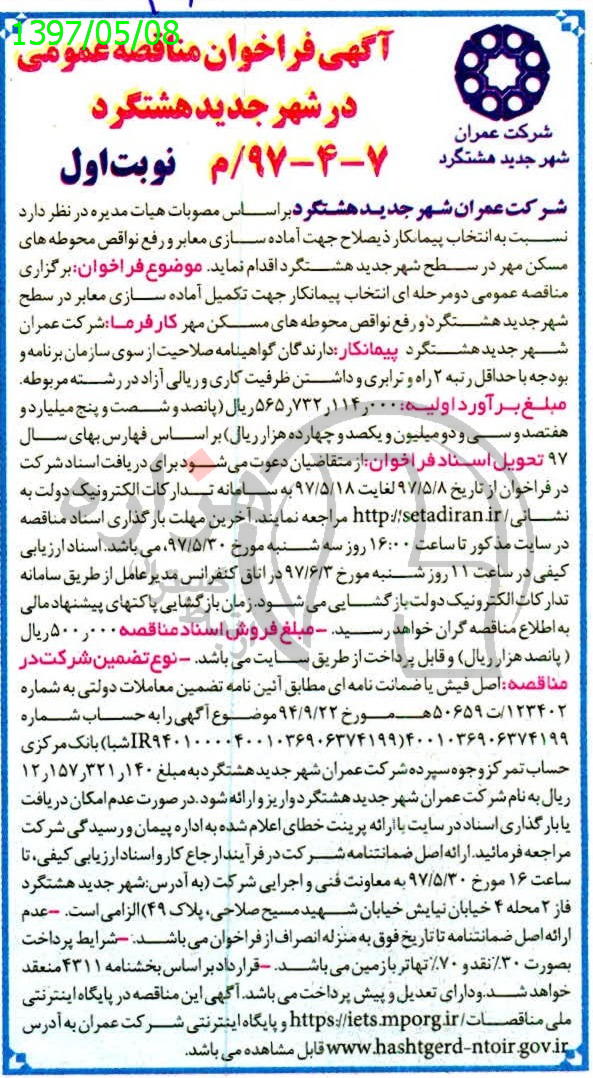 1397/05/08
آگهی فراخوان مناقصه عمومی
در شهر جدید هشتگرد
۷-۴-۹۷/م نوبت اول
شرکت عمران
شهر جدید هشتگرد
شرکت عمران شهر جدید هشتگرد براساس مصوبات هیات مدیره در نظر دارد
نسبت به انتخاب پیمانکار ذیصلاح جهت آماده سازی معابر و رفع نواقص محوطه های
مسکن مهر در سطح شهر جدید هشتگرد اقدام نماید. موضوع فراخوان: برگزاری
مناقصه عمومی دو مرحله ای انتخاب پیمانکار جهت تکمیل آماده سازی معابر در سطح
شهر جدید هشتگرد و رفع نواقص محوطه های مسکن مهر کارفرما: شرکت عمران
شهر جدید هشتگرد پیمانکار: دارندگان گواهینامه صلاحیت از سوی سازمان برنامه و
بودجه با حداقل رتبه ۲ راه و ترابری و داشتن ظرفیت کاری و ریالی آزاد در رشته مربوطه.
مبلغ برآورد اولیه: ۵۶۵٫۷۳۲٫۱۱۴٫۰۰۰ ریال (پانصد و شصت و پنج میلیارد و
هفتصد و سی و دو میلیون و یکصد و چهارده هزار ریال) بر اساس فهارس بهای سال
۹۷ تحویل اسناد فراخوان: از متقاضیان دعوت می شود برای دریافت اسناد شرکت
در فراخوان از تاریخ ۹۷/۵/۸ لغایت ۹۷/۵/۱۸ به سامانه تدارکات الکترونیک دولت به
نشانی http://setadiran.ir/ مراجعه نمایند. آخرین مهلت بارگذاری اسناد مناقصه
در سایت مذکور تا ساعت ۱۶:۰۰ روز سه شنبه مورخ ۹۷/۵/۳۰، می باشد. اسناد ارزیابی
کیفی در ساعت ۱۱ روز شنبه مورخ ۹۷/۶/۳ در اتاق کنفرانس مدیرعامل از طریق سامانه
تدارکات الکترونیک دولت بازگشایی می شود. زمان بازگشایی پاکتهای پیشنهاد مالی
به اطلاع مناقصه گران خواهد رسید. -مبلغ فروش اسناد مناقصه ۵۰۰٫۰۰۰ ریال
(پانصد هزار ریال) و قابل پرداخت از طریق سایت می باشد. -نوع تضمین شرکت در
مناقصه: اصل فیش یا ضمانت نامه ای مطابق آئین نامه تضمین معاملات دولتی به شماره
۱۲۳۴۰۲/ت ۵۰۶۵۹ هـ مورخ ۹۴/۹/۲۲ موضوع آگهی را به حساب شماره
۴۰۰۱۰۳۶۹۰۶۳۷۴۱۹۹ (IR۹۴۰۱۰۰۰۰۴۰۰۱۰۳۶۹۰۶۳۷۴۱۹۹ شبا) بانک مرکزی
حساب تمرکز وجوه سپرده شرکت عمران شهر جدید هشتگرد به مبلغ ۱۲٫۱۵۷٫۳۲۱٫۱۴۰
ریال به نام شرکت عمران شهر جدید هشتگرد واریز و ارائه شود. در صورت عدم امکان دریافت
یا بارگذاری اسناد در سایت با ارائه پرینت خطای اعلام شده به اداره پیمان و رسیدگی شرکت
مراجعه فرمائید. ارائه اصل ضمانتنامه شرکت در فرآیند ارجاع کار و اسناد ارزیابی کیفی، تا
ساعت ۱۶ مورخ ۹۷/۵/۳۰ به معاونت فنی و اجرایی شرکت (به آدرس: شهر جدید هشتگرد
فاز ۲ محله ۴ خیابان نیایش خیابان شهید مسیح صلاحی، پلاک ۴۹) الزامی است. -عدم
ارائه اصل ضمانتنامه تا تاریخ فوق به منزله انصراف از فراخوان می باشد. -شرایط پرداخت
بصورت ۳۰٪ نقد و ۷۰٪ تهاتر با زمین می باشد. -قرارداد بر اساس بخشنامه ۴۳۱۱ منعقد
خواهد شد. و دارای تعدیل و پیش پرداخت می باشد. آگهی این مناقصه در پایگاه اینترنتی
ملی مناقصات https://iets.mporg.ir/ و پایگاه اینترنتی شرکت عمران به آدرس
www.hashtgerd-ntoir.gov.ir قابل مشاهده می باشد.